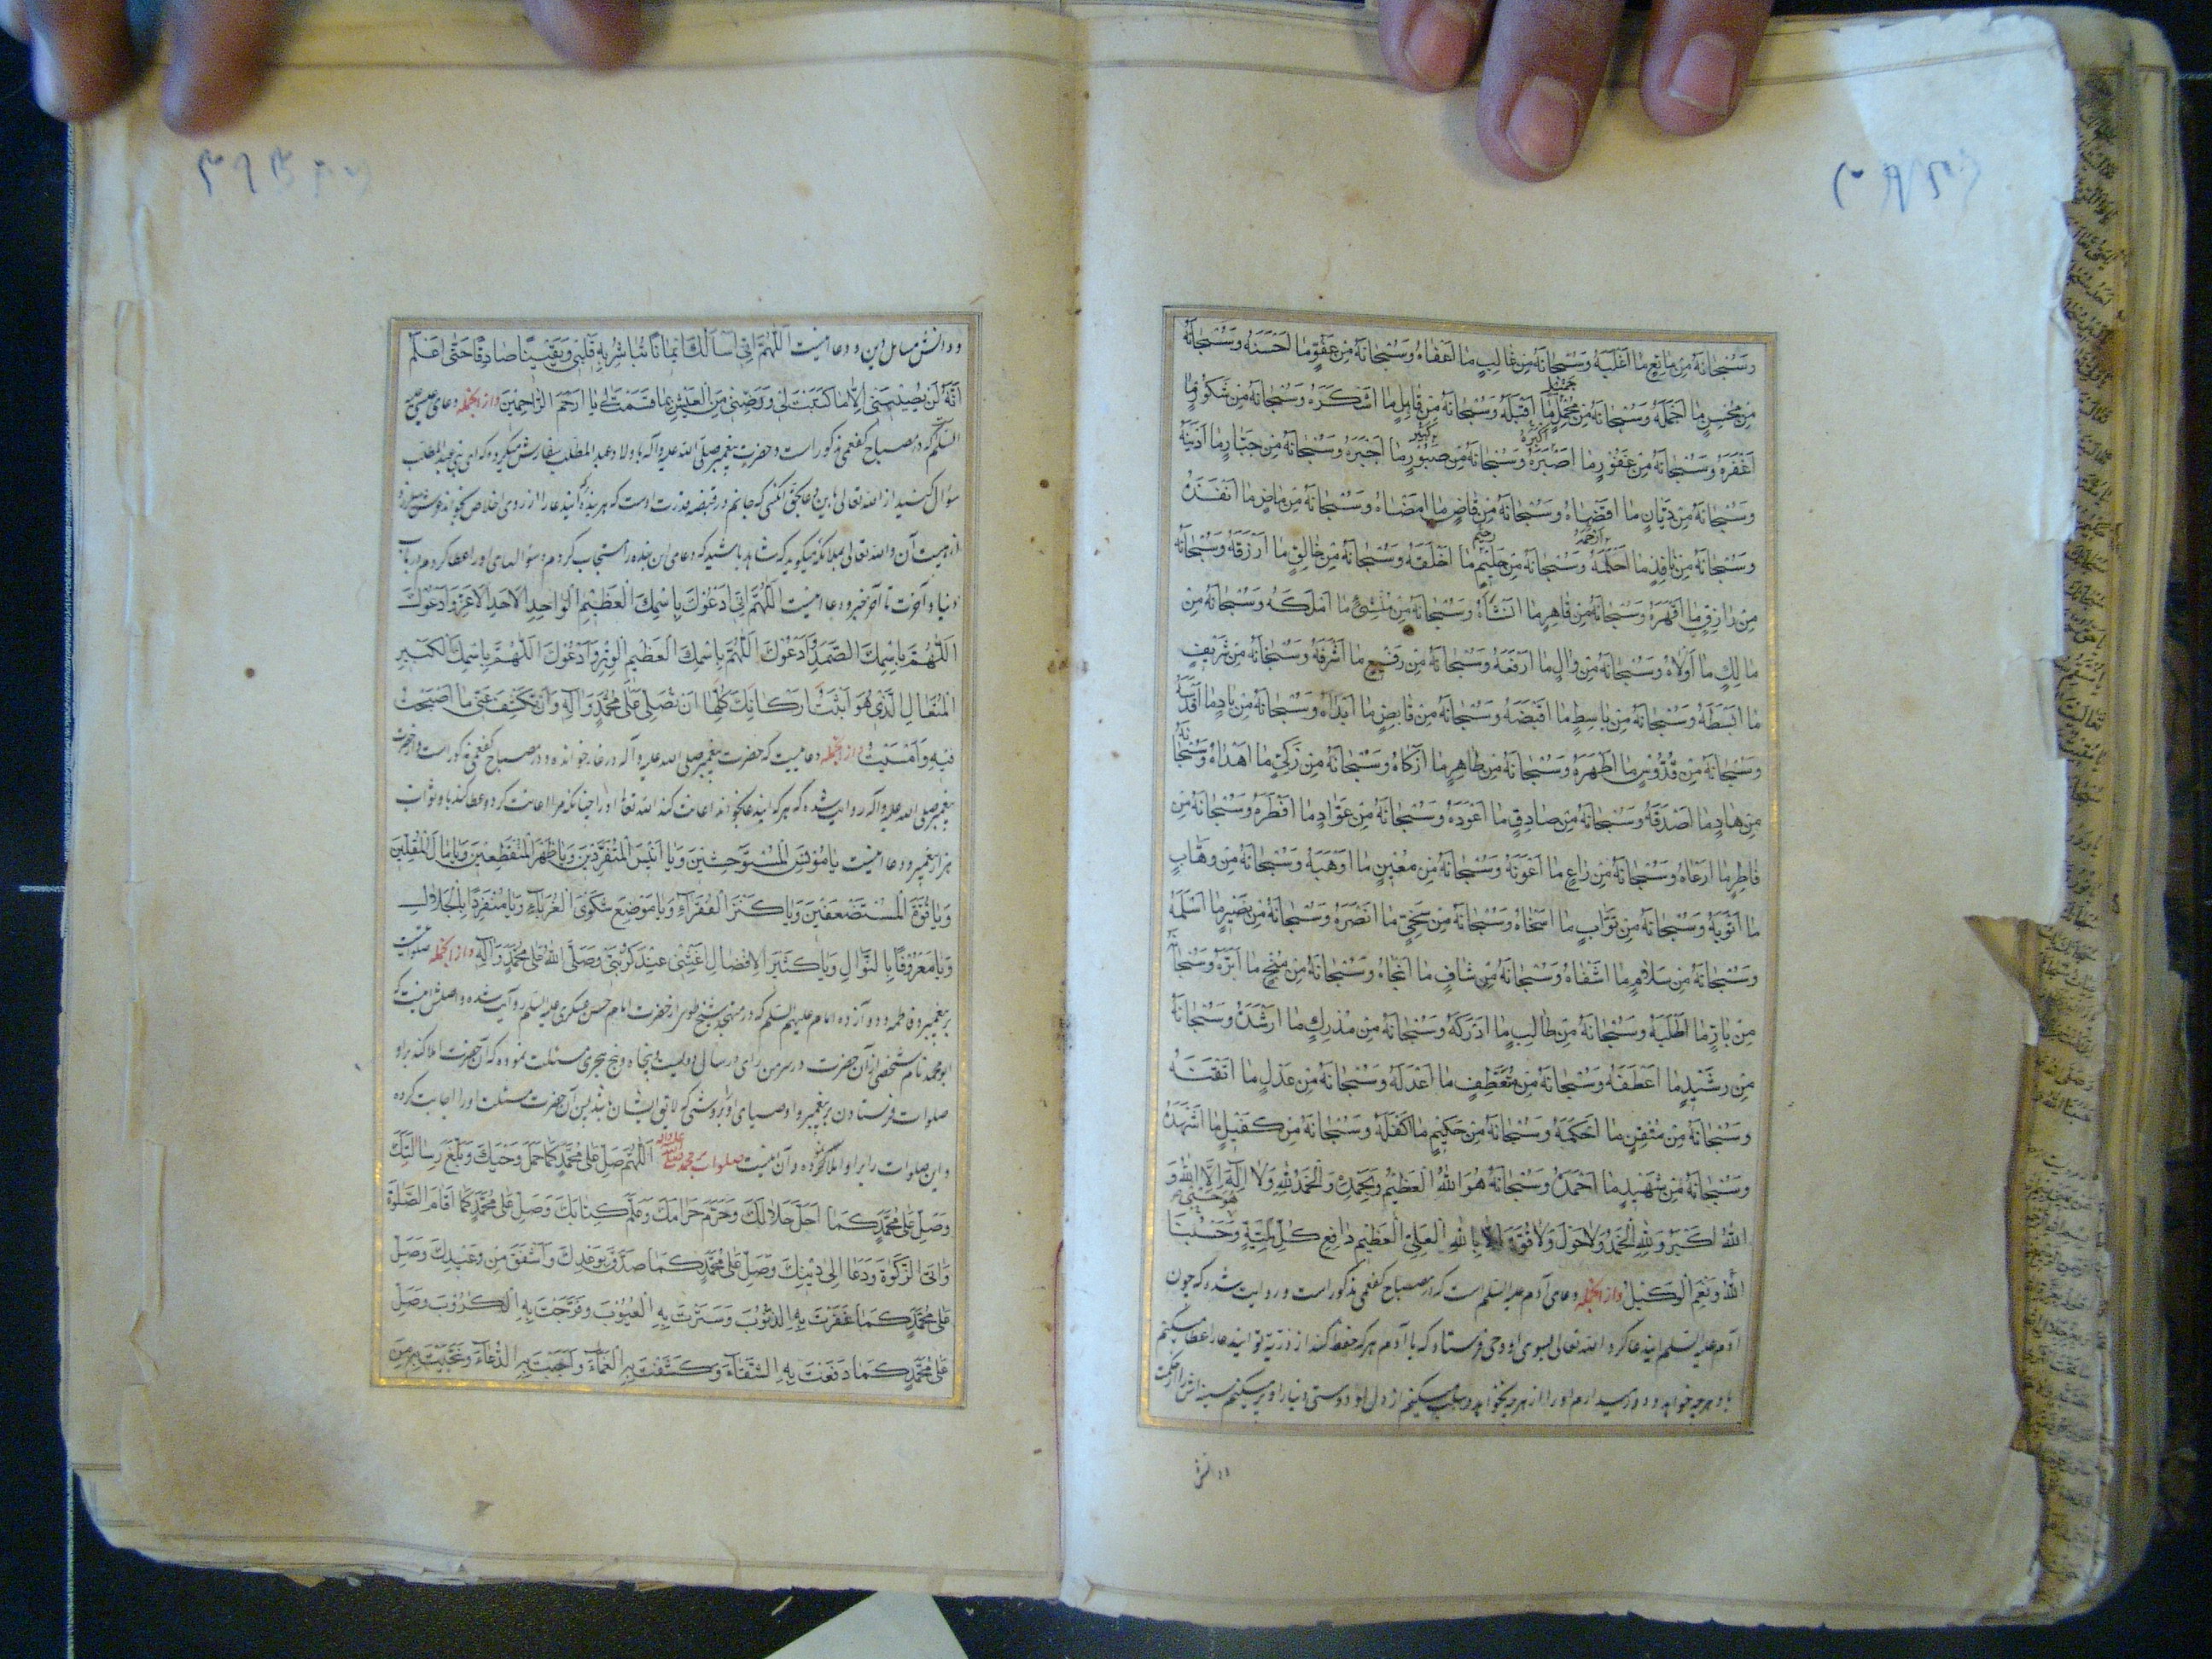 وسبحانه من مانع ما اغلبه وسبحانه من غالب ما اعفاه وسبحانه من عفو ما احسنه وسبحانه
من محسن ما اجمله وسبحانه من مجمل ما اقبله وسبحانه من قابل ما اشكره وسبحانه من شكور ما
اغفره وسبحانه من غفور ما اصبره وسبحانه من صبور ما اجبره وسبحانه من جبار ما ادينه
وسبحانه من ديان ما اقضاه وسبحانه من قاض ما امضاه وسبحانه من ماض ما انفذه
وسبحانه من نافذ ما احلمه وسبحانه من حليم ما اخلقه وسبحانه من خالق ما ارزقه وسبحانه
من رازق ما اقهره وسبحانه من قاهر ما انشأه وسبحانه من منشئ ما املكه وسبحانه من
مالك ما اولاه وسبحانه من وال ما ارفعه وسبحانه من رفيع ما اشرفه وسبحانه من شريف
ما ابسطه وسبحانه من باسط ما اقبضه وسبحانه من قابض ما ابداه وسبحانه من باد ما اقدسه
وسبحانه من قدوس ما اطهره وسبحانه من طاهر ما ازكاه وسبحانه من زكي ما اهداه وسبحانه
من هاد ما اصدقه وسبحانه من صادق ما اعوده وسبحانه من عواد ما افطره وسبحانه من
فاطر ما ارعاه وسبحانه من راع ما اعونه وسبحانه من معين ما اوهبه وسبحانه من وهاب
ما اتوبه وسبحانه من تواب ما اسخاه وسبحانه من سخي ما انصره وسبحانه من نصير ما اسلمه
وسبحانه من سلام ما اشفاه وسبحانه من شاف ما انجاه وسبحانه من منج ما ابره وسبحانه
من بار ما اطلبه وسبحانه من طالب ما ادركه وسبحانه من مدرك ما ارشده وسبحانه
من رشيد ما اعطفه وسبحانه من متعطف ما اعدله وسبحانه من عدل ما اتقنه
وسبحانه من متقن ما احكمه وسبحانه من حكيم ما اكفله وسبحانه من كفيل ما اشهده
وسبحانه من شهيد ما احمده وسبحانه هو الله العظيم وبحمده والحمد لله ولا اله الا الله و
الله اكبر ولله الحمد ولا حول ولا قوة الا بالله العلي العظيم دافع كل بلية وحسبنا
الله ونعم الوكيل واز انجمله دعاى آدم عليه السلم است كه در مصباح كفعمى مذكور است و روايت شده كه چون
آدم عليه السلم ايندعا كرد الله تعالى بسوى او وحى فرستاد كه يا آدم هركه حفظ كند از ذرية تو ايندعا را عطا ميكنم
دو دانش
و دانش مسائل دين و دعا اينست اللهم اني اسألك ايمانا تباشر به قلبي ويقينا صادقا حتى اعلم
انه لن يصيبني الا ما كتبت لي ورضني من العيش بما قسمت لي يا ارحم الراحمين واز انجمله دعاى عيسى عليه
السلم كه در مصباح كفعمى مذكور است و حضرت پيغمبر صلى الله عليه وآله باولاد عبد المطلب سفارش ميكرده كه اى بنى عبد المطلب
سؤال كنيد از الله تعالى باين دعا بحق آنكسى كه جانم در قبضه قدرت اوست كه هر بنده كه ايندعا را از روى اخلاص بخواند
آن و الله تعالى بملائكه ميگويد كه شاهد باشيد كه دعاى اين بنده را مستجاب كردم و سؤالهاى او را عطا كردم
دنيا و آخرت تا آخر خبر و دعا اينست اللهم اني ادعوك باسمك العظيم الواحد الاحد الاعز وادعوك
اللهم باسمك الصمد وادعوك اللهم باسمك العظيم الوتر وادعوك اللهم باسمك الكبير
المتعال الذي هو اثبت اركانك كلها ان تصلي على محمد وآله وان تكشف عني ما اصبحت
فيه وامسيت واز انجمله دعاييست كه حضرت پيغمبر صلى الله عليه وآله در غار خوانده و در مصباح كفعمى مذكور است و از حضرت
پيغمبر صلى الله عليه وآله روايت شده كه هر كه ايندعا بخواند اعانت كند الله تعالى او را چنانكه مرا اعانت كرد و عطا كند باو ثواب
هزار پيغمبر و دعا اينست يا مونس المستوحشين ويا انيس المتفردين ويا ظهر المنقطعين ويا مال المقلين
ويا قوة المستضعفين ويا كنز الفقراء ويا موضع شكوى الغرباء ويا منفردا بالجلال
ويا معروفا بالنوال ويا كثير الافضال اغثني عند كربتي وصلى الله على محمد وآله واز انجمله صلوات
بر پيغمبر و فاطمه و دوازده امام عليهم السلم كه در متهجد شيخ طوسى از حضرت امام حسن عسكرى عليه السلم روايت شده و اصلش اينست كه
ابو محمد نام شخصى از آن حضرت در سر من راى در سال دويست و پنجاه و پنج هجرى مسئلت نموده كه آن حضرت املا كند براو
صلوات فرستادن بر پيغمبر و اوصياى او بروشى كه لايق ايشان باشد پس آن حضرت مسئلت او را اجابت كرده
و اين صلوات را براو املا كرده و آن اينست صلوات بر محمد صلى الله عليه وآله اللهم صل على محمد كما حمل وحيك وبلغ رسالتك
وصل على محمد كما احل حلالك وحرم حرامك وعلم كتابك وصل على محمد كما اقام الصلوة
واتى الزكوة ودعا الى دينك وصل على محمد كما صدق بوعدك واشفق من وعيدك وصل
على محمد كما غفرت به الذنوب وسترت به العيوب وفرجت به الكروب وصل
على محمد كما دفعت به الشقاء وكشفت به الغماء واجبت به الدعاء ونجيت به من